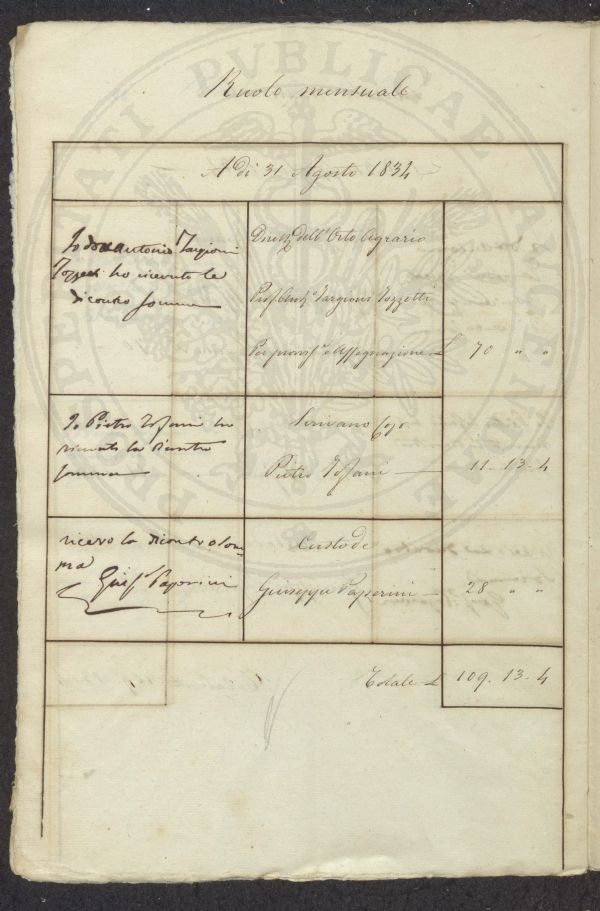 Ruolo mensuale
A dì 31 Agosto 1834
Io Antonio Targioni
Tozzetti ho ricevuto la
dicontro somma
Dirett.e dell'Orto Agrario
Prof. Ant.o Targioni Tozzetti
Per provvis.e e Assegnazione £ 70 " "
Io Pietro ho
ricevuto la dicontro
somma
Scrivano
Pietro
11. 13. 4
ricevo la dicontro som-
ma
Giuse. Paperini
Custode
Giuseppe Paperini
28 " "
Totale £ 109. 13. 4